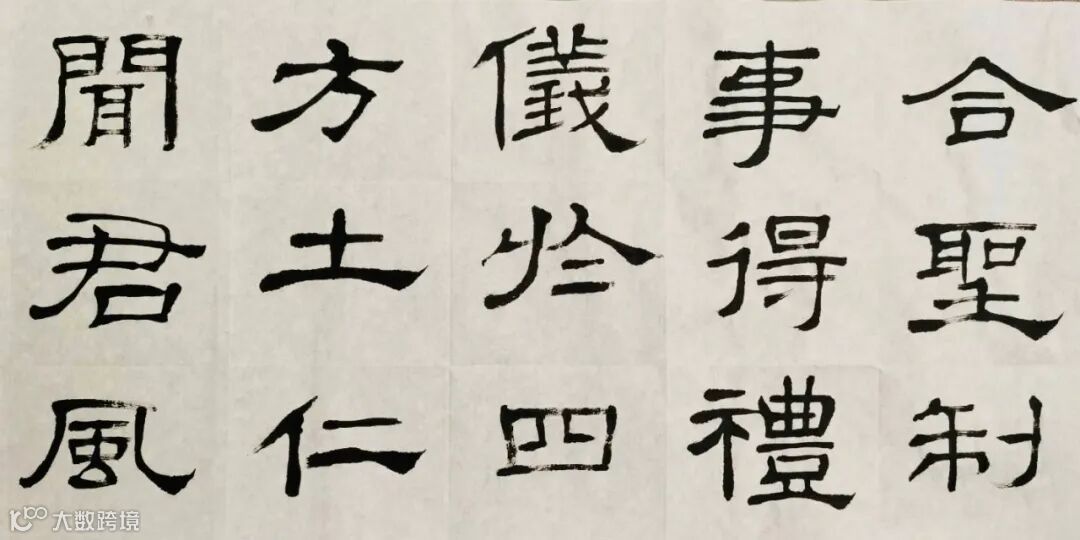 合聖制
事得禮
儀於四
方土仁
聞君風
大数跨境